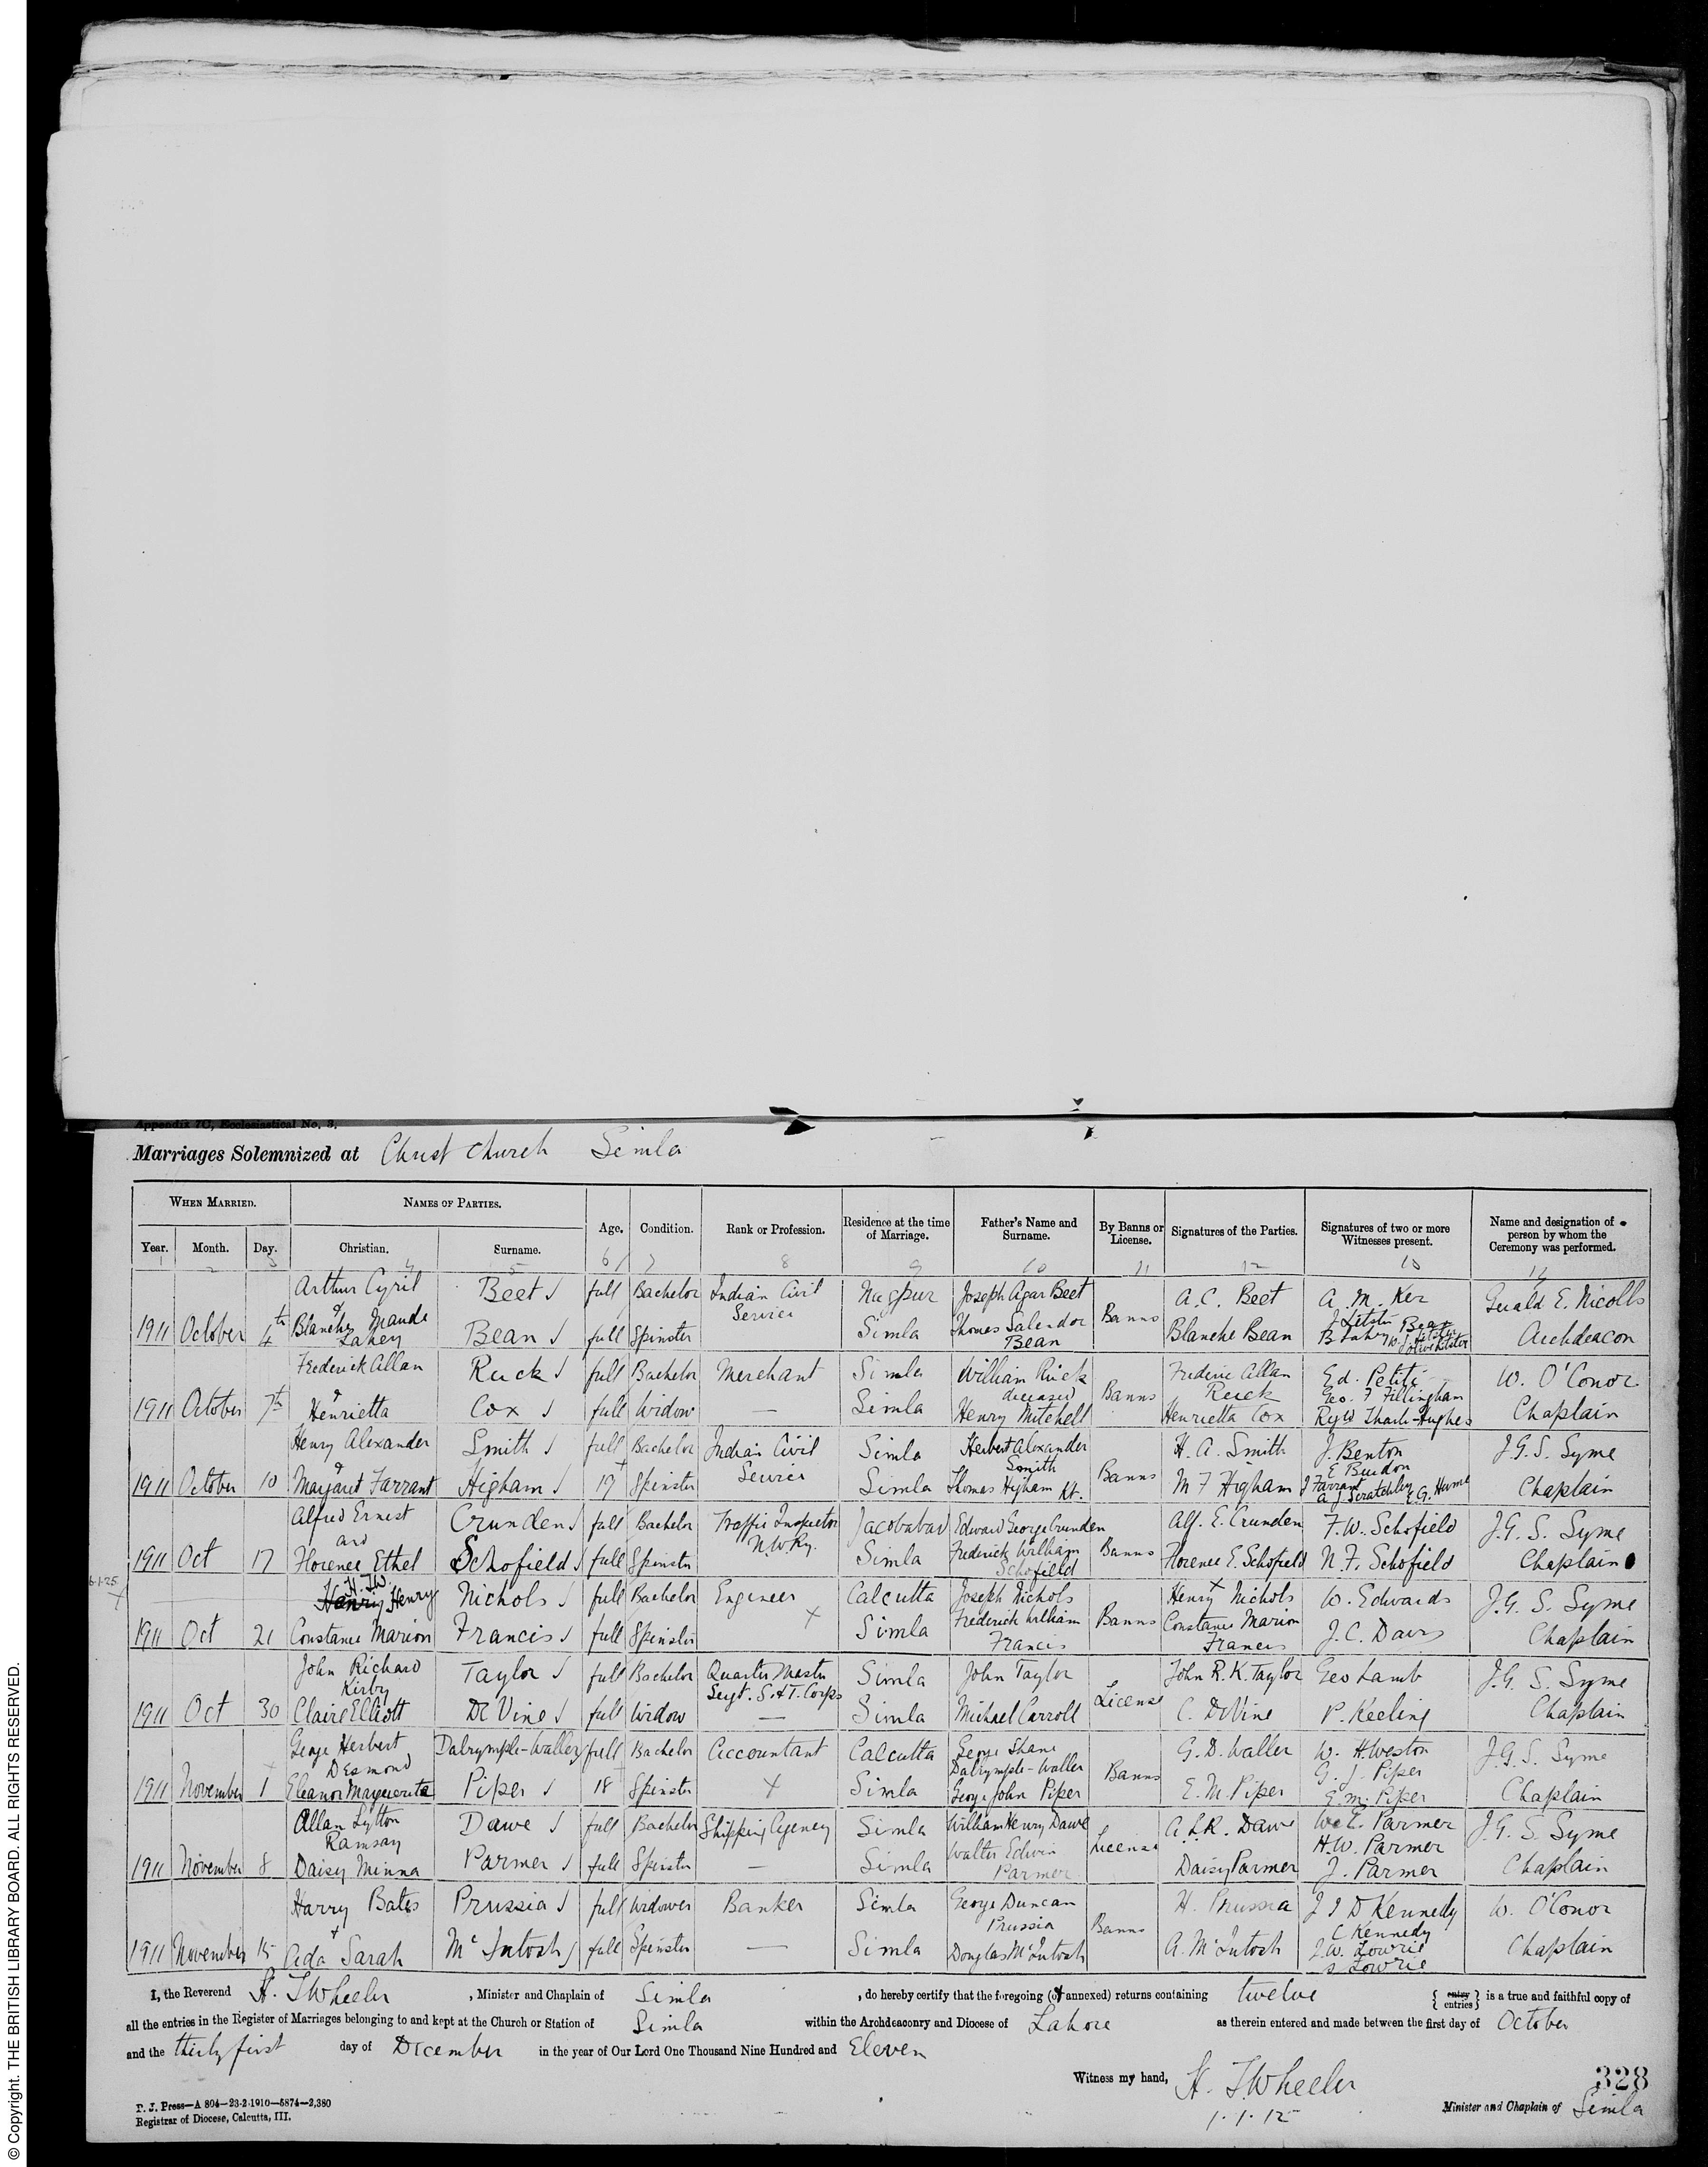 Appendix 7C, Ecclesiastical No. 3.
Marriages Solemnized at Christ Church Simla
WHEN MARRIED. NAMES OF PARTIES. Age. Condition. Rank or Profession. Residence at the time of Marriage. Father's Name and Surname. By Banns or License. Signatures of the Parties. Signatures of two or more Witnesses present. Name and designation of person by whom the Ceremony was performed.
Year. Month. Day. Christian. Surname.
1 2 3 4 5 6 7 8 9 10 11 12 13 14
Arthur Cyril Beet full Bachelor Indian Civil Service Nagpur Joseph Agar Beet A.C. Beet A. M. Ker Gerald E. Nicolls
1911 October 4th & Blanche Maude Lahey Bean full Spinster Simla Thomas Bean Banns Blanche Bean Archdeacon
Frederick Allan Ruck full Bachelor Merchant Simla William Ruck deceased Frederic Allan Ruck Ed. Petiti W. O'Conor
1911 October 7th & Henrietta Cox full Widow — Simla Henry Mitchell Banns Henrietta Cox Geo. F Fillingham Chaplain
Henry Alexander Smith full Bachelor Indian Civil Service Simla Herbert Alexander Smith H. A. Smith J. Benton J.G.S. Syme
1911 October 10 & Margaret Farrant Higham 19 Spinster Simla Thomas Higham Kt. Banns M F Higham E Burdon J Farrant A J Scratchley E.G. Hume Chaplain
Alfred Ernest Crunden full Bachelor Traffic Inspector N.W.Ry. Jacobabad Edward George Crunden Alf. E. Crunden F.W. Schofield J.G. S. Syme
1911 Oct 17 and Florence Ethel Schofield full Spinster Simla Frederick William Schofield Banns Florence E. Schofield N. F. Schofield Chaplain
6-1-25 H.T.W. Henry Henry Nichols full Bachelor Engineer Calcutta Joseph Nichols Henry Nichols W. Edwards J.G. S. Syme
1911 Oct 21 Constance Marion Francis full Spinster Simla Frederick William Francis Banns Constance Marion Francis J.C. Davis Chaplain
John Richard Kirby Taylor full Bachelor Quarter Master Sergt. S. & T. Corps Simla John Taylor John R. K. Taylor Geo Lamb J.G. S. Syme
1911 Oct 30 Claire Elliott De Vine full Widow — Simla Michael Carroll License C. De Vine P. Keeling Chaplain
George Herbert Desmond Dalrymple-Waller full Bachelor Accountant Calcutta George Shane Dalrymple-Waller G. D. Waller W. H. Weston J.G.S. Syme
1911 November 1 Eleanor Marguerita Piper 18 Spinster Simla George John Piper Banns E. M. Piper G. J. Piper E. M. Piper Chaplain
Allan Lytton Ramsay Dawe full Bachelor Shipping Agency Simla William Henry Dawe A.L.R. Dawe W. E. Parmer J.G. S. Syme
1911 November 8 Daisy Minna Parmer full Spinster — Simla Walter Edwin Parmer License Daisy Parmer H.W. Parmer J. Parmer Chaplain
Harry Bates Prussia full Widower Banker Simla George Duncan Prussia H. Prussia J I D Kennedy W. O'Conor
1911 November 15 & Ada Sarah McIntosh full Spinster — Simla Douglas McIntosh Banns A. McIntosh C Kennedy J.W. Lowrie S Lowrie Chaplain
I, the Reverend H. T Wheeler, Minister and Chaplain of Simla, do hereby certify that the foregoing (or annexed) returns containing twelve { entry entries } is a true and faithful copy of
all the entries in the Register of Marriages belonging to and kept at the Church or Station of Simla within the Archdeaconry and Diocese of Lahore as therein entered and made between the first day of October
and the thirty first day of December in the year of Our Lord One Thousand Nine Hundred and Eleven
Witness my hand, H. T Wheeler
1.1.12
328
Minister and Chaplain of Simla
P. J. Press—A 804—23-2-1910—5874—2,380
Registrar of Diocese, Calcutta, III.
© Copyright. THE BRITISH LIBRARY BOARD. ALL RIGHTS RESERVED.